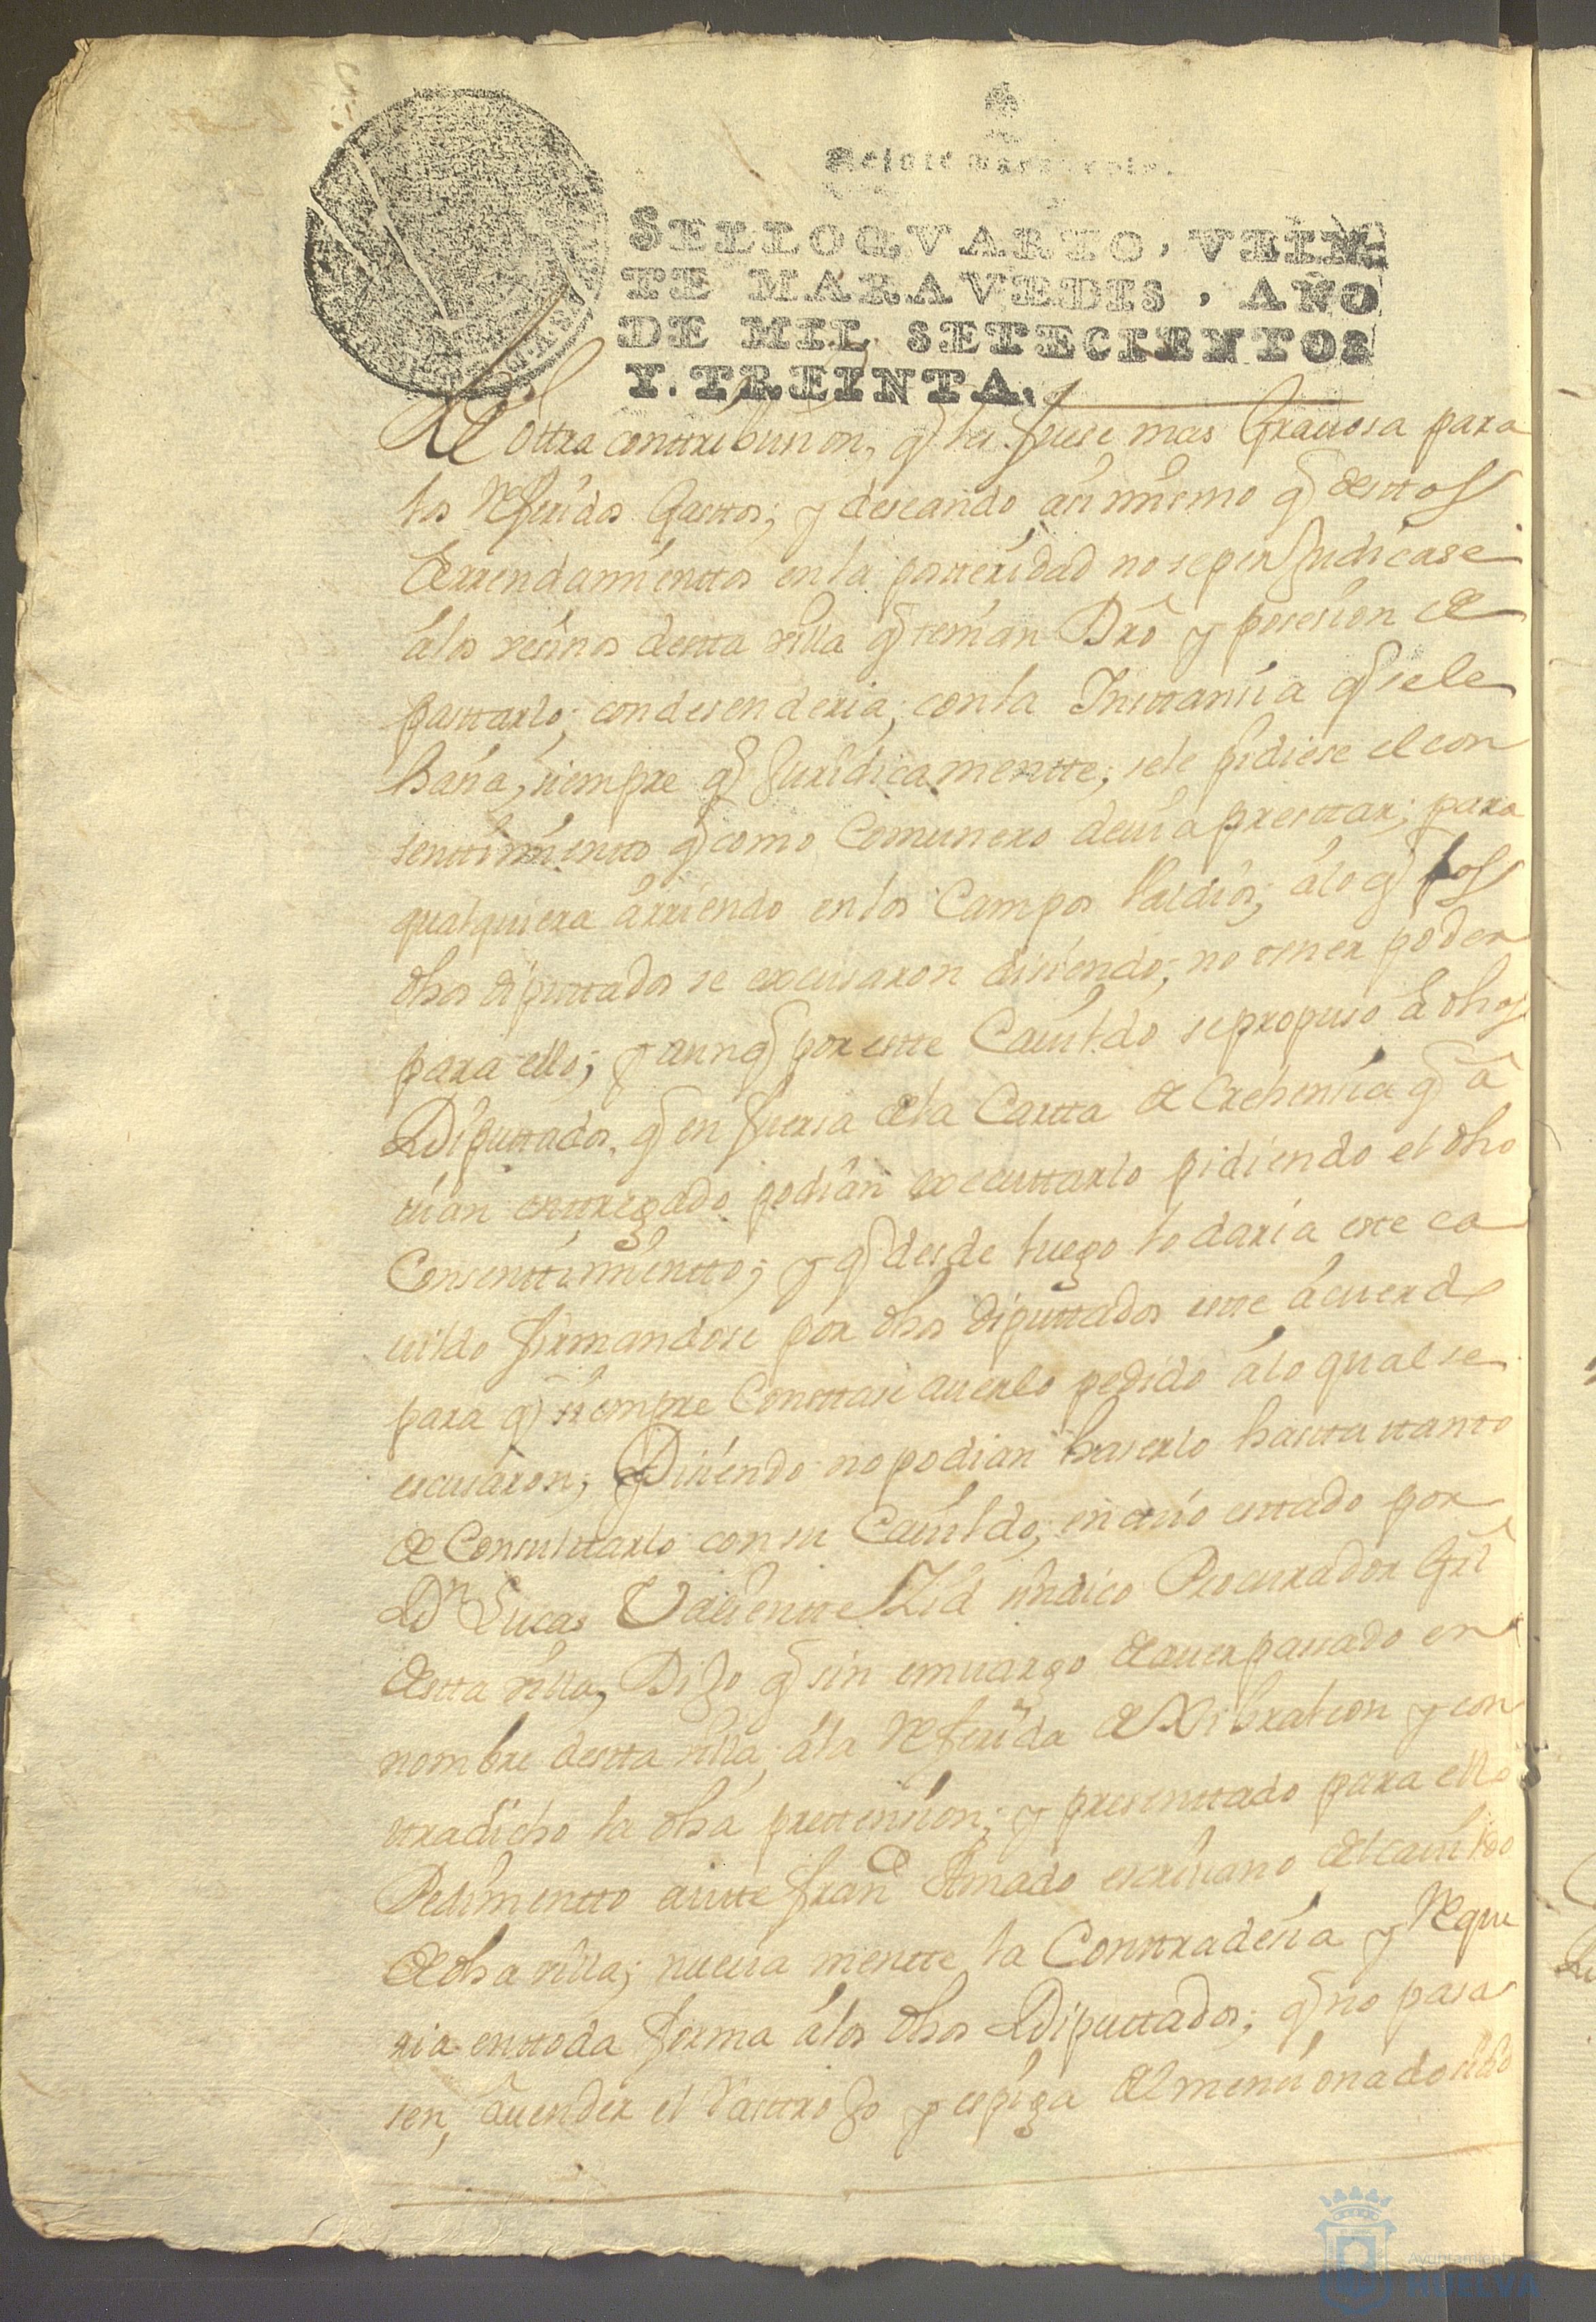 Veinte maravedis.
SELLO QVARTO, VEIN-
TE MARAVEDIS, AÑO
DE MIL SETECIENTOS
Y. TREINTA.
de ottra conttribusion, q̃ les fuese mas Grauosa para
los referidos Gasttos; y deseando asimismo q̃ desttos
Arrendamienttos en la postteridad no se perjudicase
á los vesinos destta villa q̃ tenian Dr̃o y posesion de
pasttarlo; condesenderia, con la Insttansia q̃ se le
hasia, siempre q̃ Juridicamentte, se le pidiese el con
senttimientto q̃ como Comunero deuia presttar; para
qualquiera arriendo en los Campos Valdios; á lo q̃ los
dhos diputtados se excusaron disiendo; no tener poder
para ello; y aunq̃ por estte Cauildo se propuso á dhos
Diputtados, q̃ en fuersa de la Cartta de Crehensia q̃ a
uian enttregado podian executtarlo pidiendo el dho
Consenttimientto; y q̃ desde luego lo daria este ca
uildo firmandose por dhos diputtados este acuerdo
para q̃ siempre Consttase auerlo pedido á lo qual se
escusaron; Disiendo no podian haserlo hastta ttanto
de Consulttarlo con su Cauildo; en cuio esttado por
Dn Lucas Valientte Zid sindico Procurador Grl̃
destta villa, Dijo q̃ sin emuargo de auer pasado en
nombre destta villa, á la referida de Xibraleon y con
ttradicho la dha prettension; y presenttado para ello
Pedimentto antte Franco Amado escriuano del cauildo
de dha villa; nueuamentte la Conttradesia y reque
ria en ttoda forma á los dhos Diputtados; q̃ no pasa
sen, á uender el Rasttrojo y espiga del mensionado sitio
Ayuntamiento
HUELVA